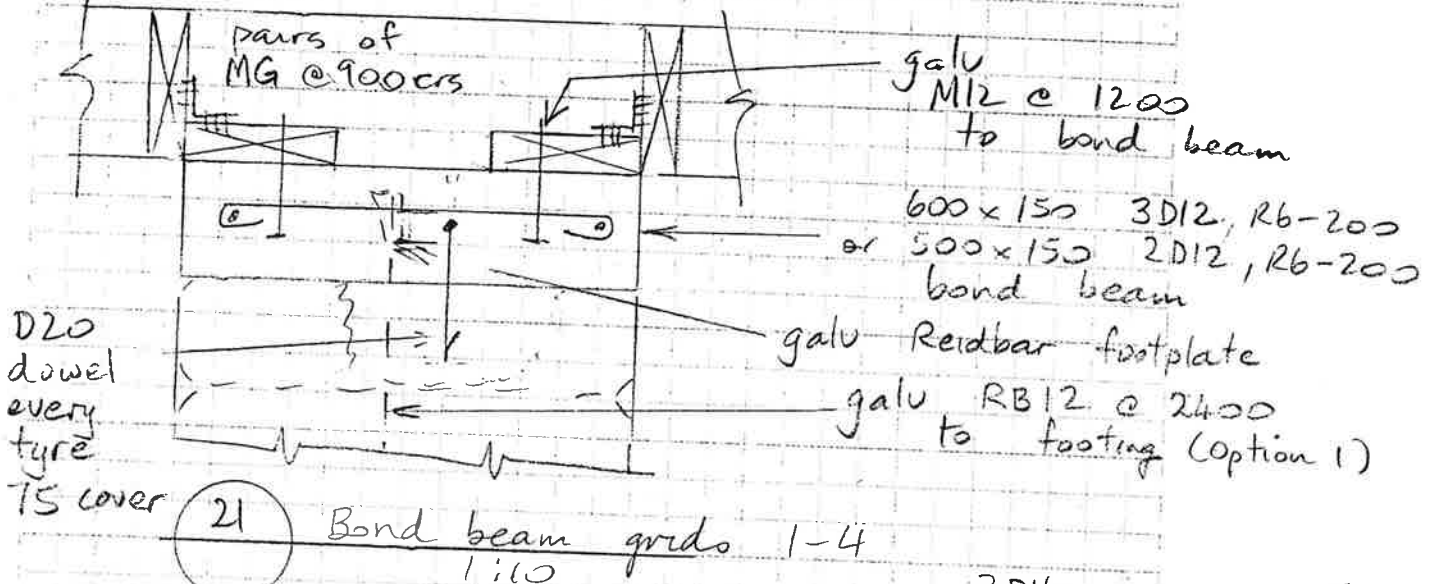 pairs of
MG @ 900crs
galv
M12 @ 1200
to bond beam
600 x 150 3D12, R6-200
or 500 x 150 2D12, R6-200
bond beam
galv Reidbar footplate
galv RB12 @ 2400
to footing (Option 1)
D20
dowel
every
tyre
75 cover
21 Bond beam grids 1-4
1:10